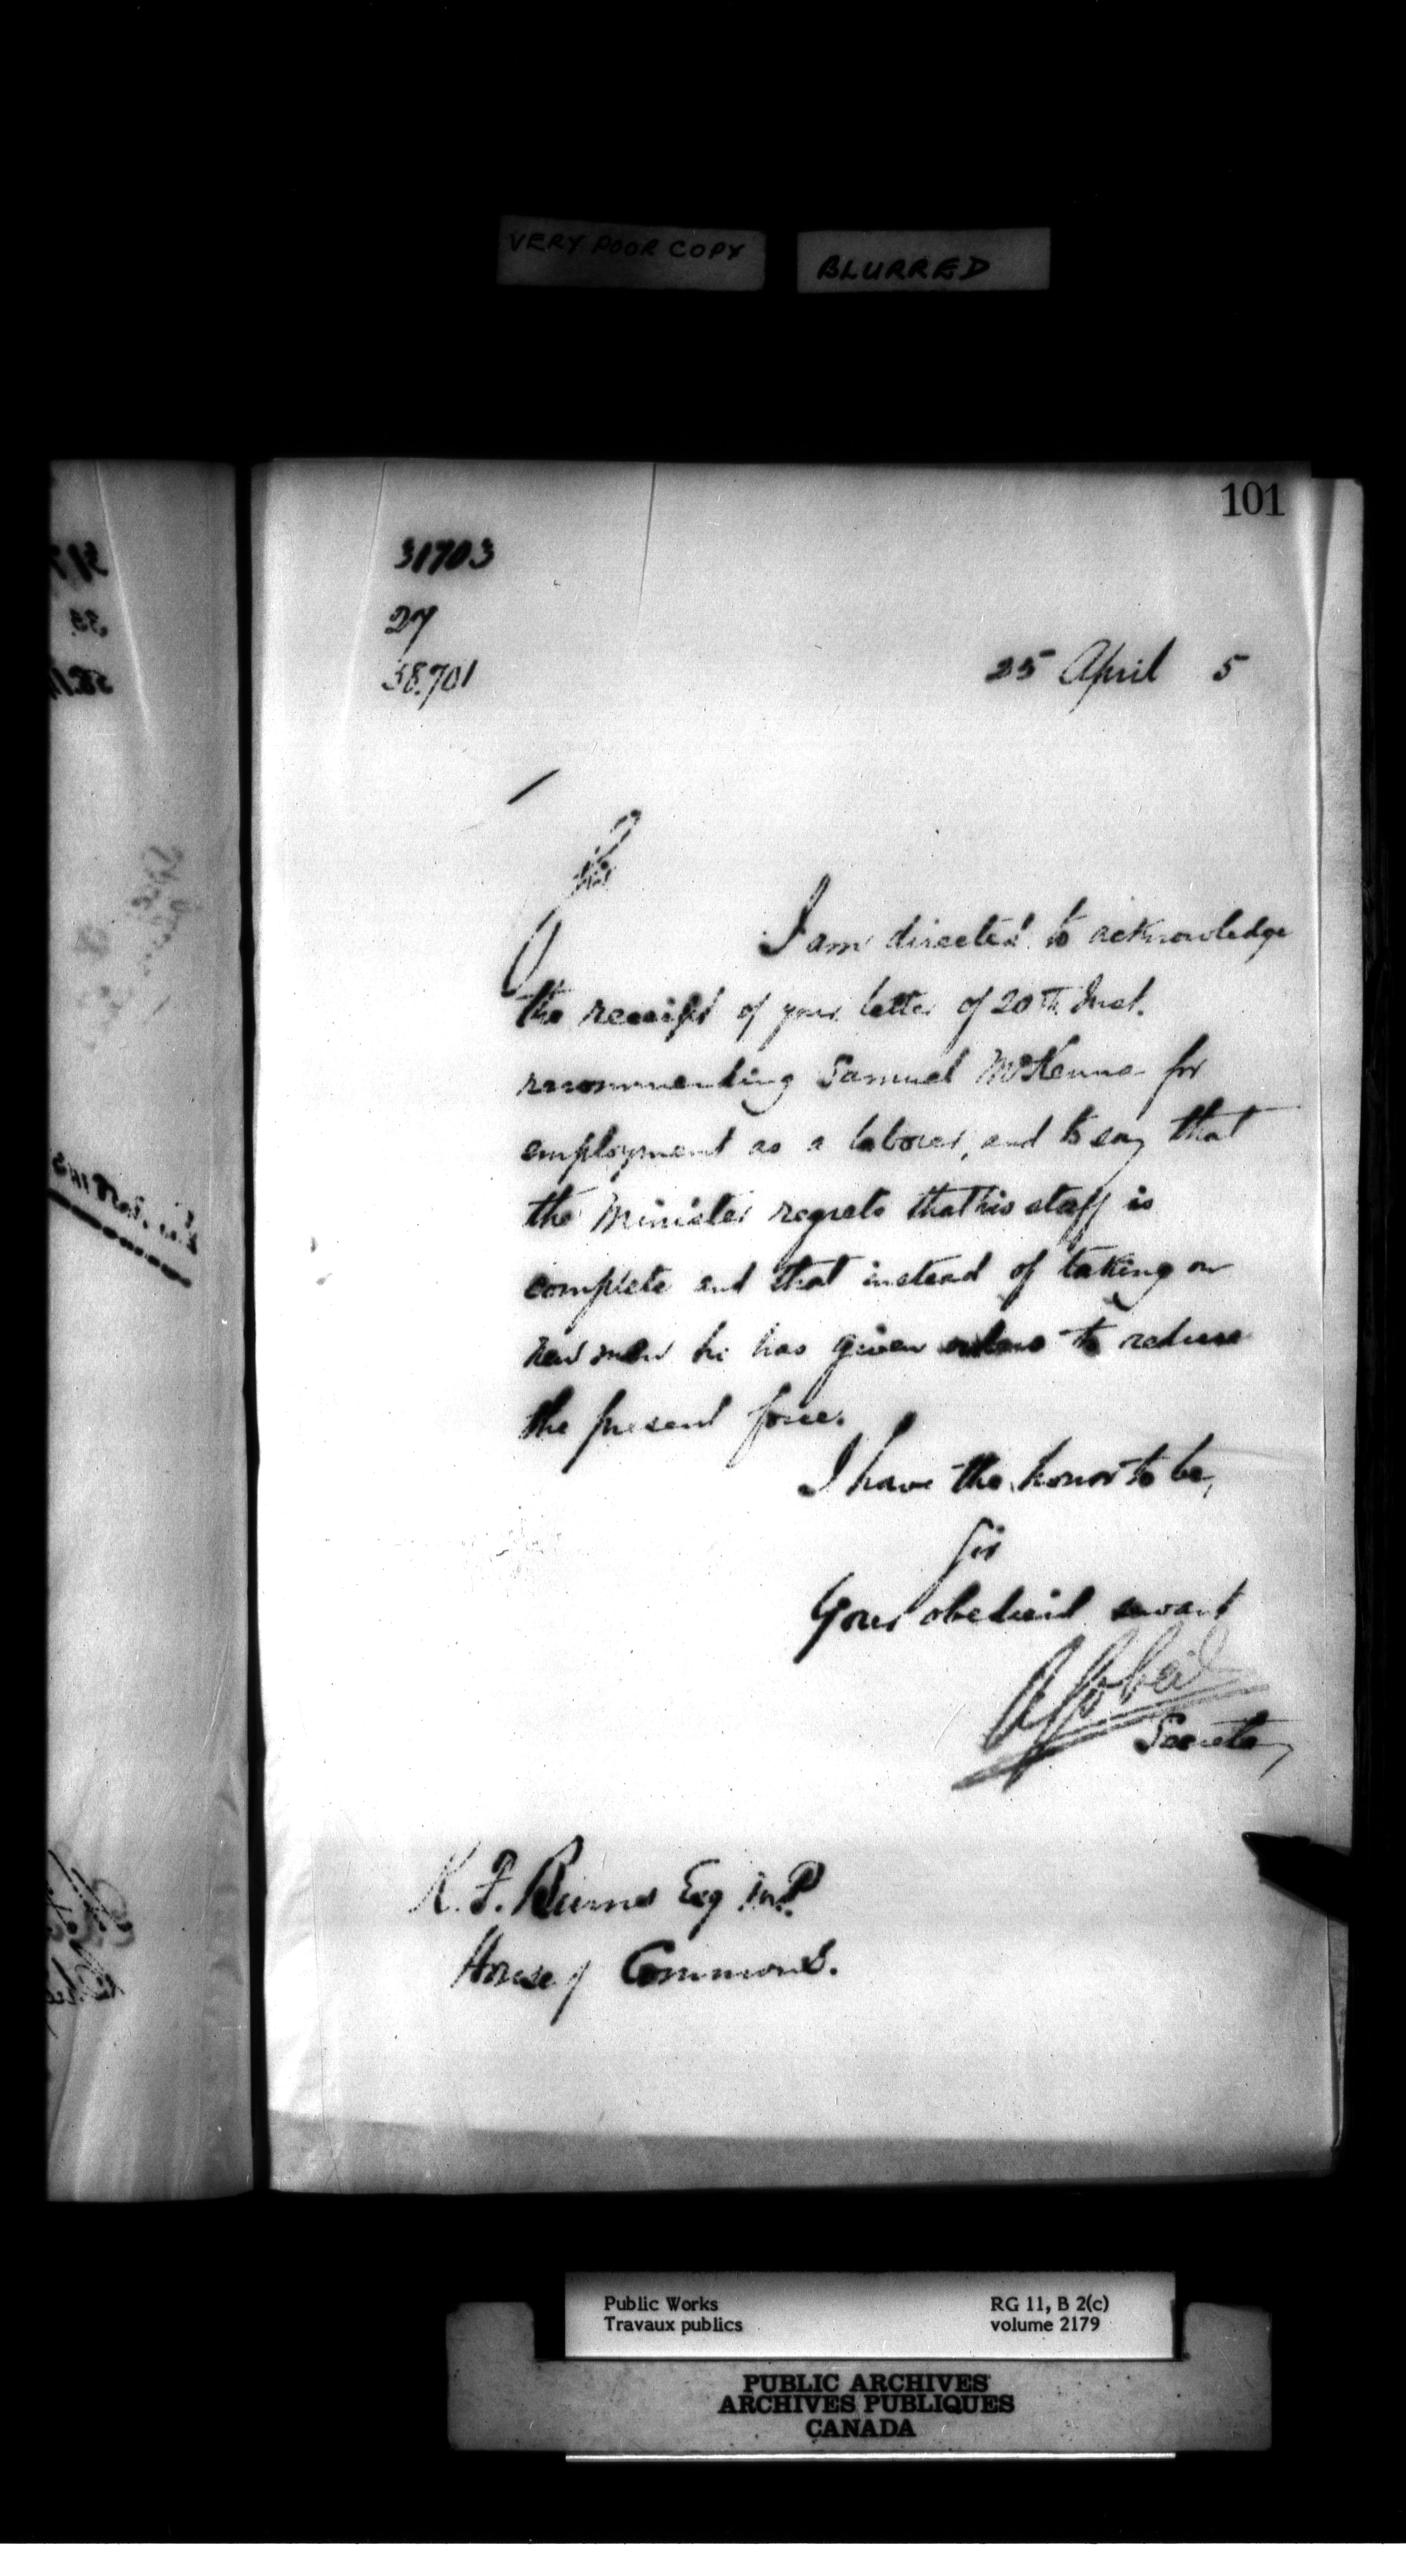 VERY POOR COPY
BLURRED
101
31703
27
58.701
25 April 5
Sir
I am directed to acknowledge
the receipt of your letter of 20th Inst.
recommending Samuel McKenna for
employment as a laborer, and to say that
the Minister regrets that his staff is
complete and that instead of taking on
new men he has given orders to reduce
the present force.
I have the honor to be,
Sir
Your obedient servant
A Gobeil
Secretary
K. F. Burns Esq M.P.
House of Commons.
Public Works
Travaux publics
RG 11, B 2(c)
volume 2179
PUBLIC ARCHIVES
ARCHIVES PUBLIQUES
CANADA